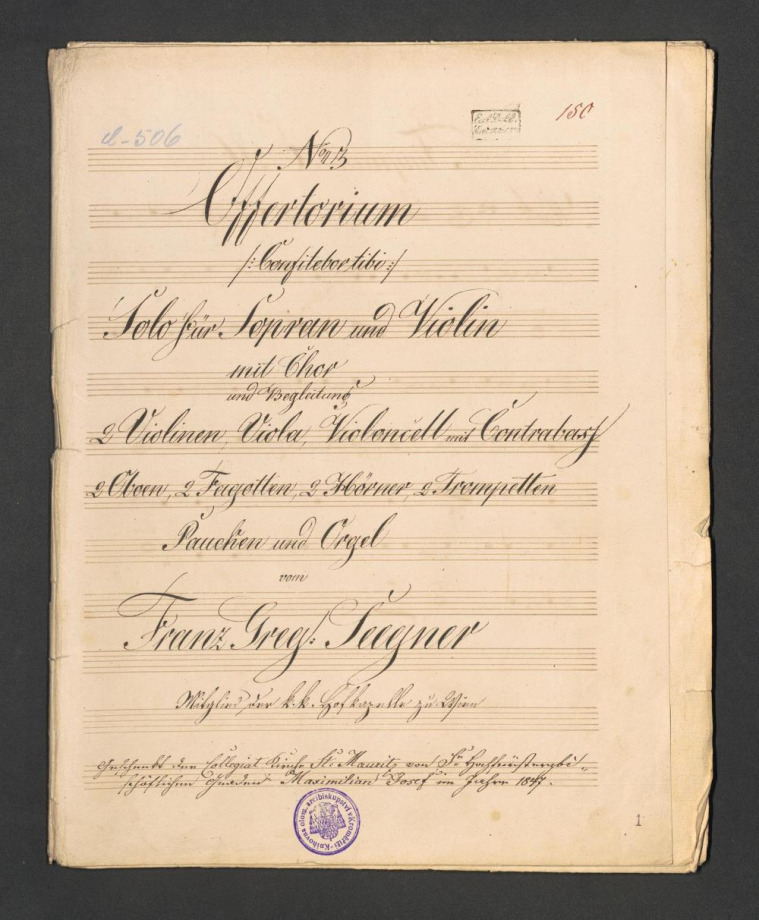 A-506
150
No 13
Offertorium
/: Confitebor tibi :/
Solo für Sopran und Violin
mit Chor
und Begleitung
2 Violinen, Viola, Violoncell mit Contrabass
2 Oboen, 2 Fagotten, 2 Hörner, 2 Trompetten
Paucken und Orgel
vom
Franz Greg: Seegner
Mitglied der k. k. Hofkapelle zu Wien
Geschenkt der Collegiat Kirche St: Mauritz von Sr Hochfürsterzbi-
schöflichen Gnaden Maximilian Josef im Jahre 1847.
Knihovna olom. arcibiskupství v Kroměříži
1